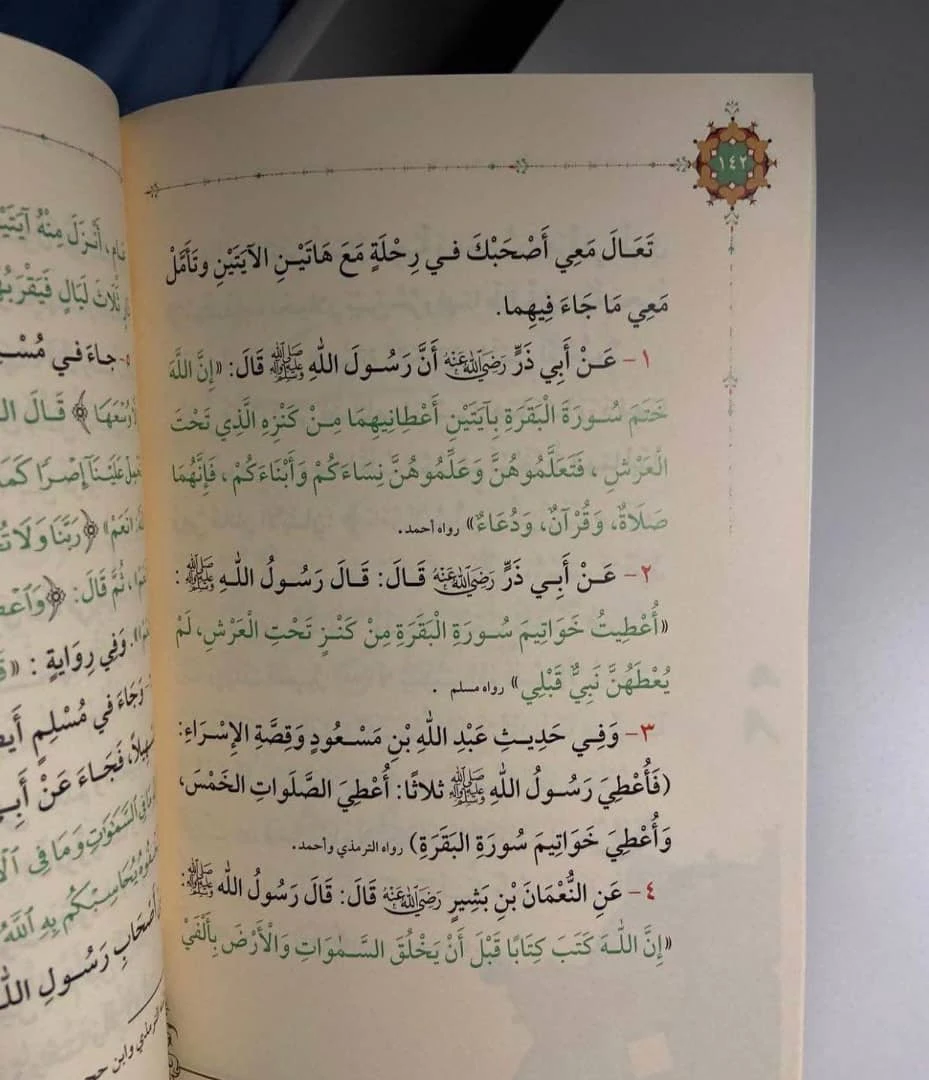 ١٤٢
تَعَـالَ مَعِي أَصْحَبْكَ فـي رِحْلَةٍ مَعَ هَاتَيْـنِ الآيَتَيْنِ وتَأَمَّلْ
مَعِي مَا جَاءَ فِيهِما.
١- عَـنْ أَبِي ذَرٍّ رَضِيَ اللَّهُ عَنْهُ أَنَّ رَسُـولَ اللهِ ﷺ قَالَ: «إِنَّ اللَّهَ
خَتَمَ سُـورَةَ الْبَقَرَةِ بِآيَتَيْنِ أَعْطَانِيهِمَا مِـنْ كَنْزِهِ الَّذِي تَحْتَ
الْعَرْشِ، فَتَعَلَّمُوهُنَّ وَعَلِّمُوهُنَّ نِسَاءَكُمْ وَأَبْنَاءَكُمْ، فَإِنَّهُمَا
صَلَاةٌ، وَقُرْآنٌ، وَدُعَاءٌ» رواه أحمد.
٢- عَـنْ أَبِـي ذَرٍّ رَضِيَ اللَّهُ عَنْهُ قَـالَ: قَـالَ رَسُـولُ اللهِ ﷺ:
«أُعْطِيتُ خَوَاتِيمَ سُـورَةِ الْبَقَرَةِ مِنْ كَنْـزٍ تَحْتِ الْعَرْشِ، لَمْ
يُعْطَهُنَّ نَبِيٌّ قَبْلِي» رواه مسلم .
٣- وَفِـي حَدِيـثِ عَبْدِ اللهِ بْنِ مَسْـعُودٍ وَقِصَّةِ الإِسْـرَاءِ:
(فَأُعْطِيَ رَسُـولُ اللهِ ﷺ ثلاثًا: أُعْطِيَ الصَّلَواتِ الخَمْسَ،
وَأُعْطِيَ خَوَاتِيمَ سُورَةِ البَقَرَةِ) رواه الترمذي وأحمد.
٤- عَنِ النُّعْمَانَ بْنِ بَشِيرٍ رَضِيَ اللَّهُ عَنْهُ قَالَ: قَالَ رَسُولُ الله ﷺ:
«إِنَّ اللهَ كَتَبَ كِتَابًا قَبْلَ أَنْ يَخْلُقَ السَّـمٰوَاتِ وَالْأَرْضَ بِأَلْفَيْ
أَنْزَلَ مِنْهُ آيَتَيْنِ
ثَلَاثَ لَيَالٍ
٥- جاءَ فـي
قَالَ
عَلَيْنَآ إِصْرًا كَمَا
﴿رَبَّنَا وَلَا
ثُمَّ قَالَ:
وَفِي رِوَايَةٍ :
وَجَاءَ في مُسْلِمٍ
فَجَاءَ عَنْ
السَّمَوَتِ وَمَا فِي
يُحَاسِبْكُم بِهِ اللَّهُ
أَصْحَابِ رَسُـولِ
الترمذي وابن